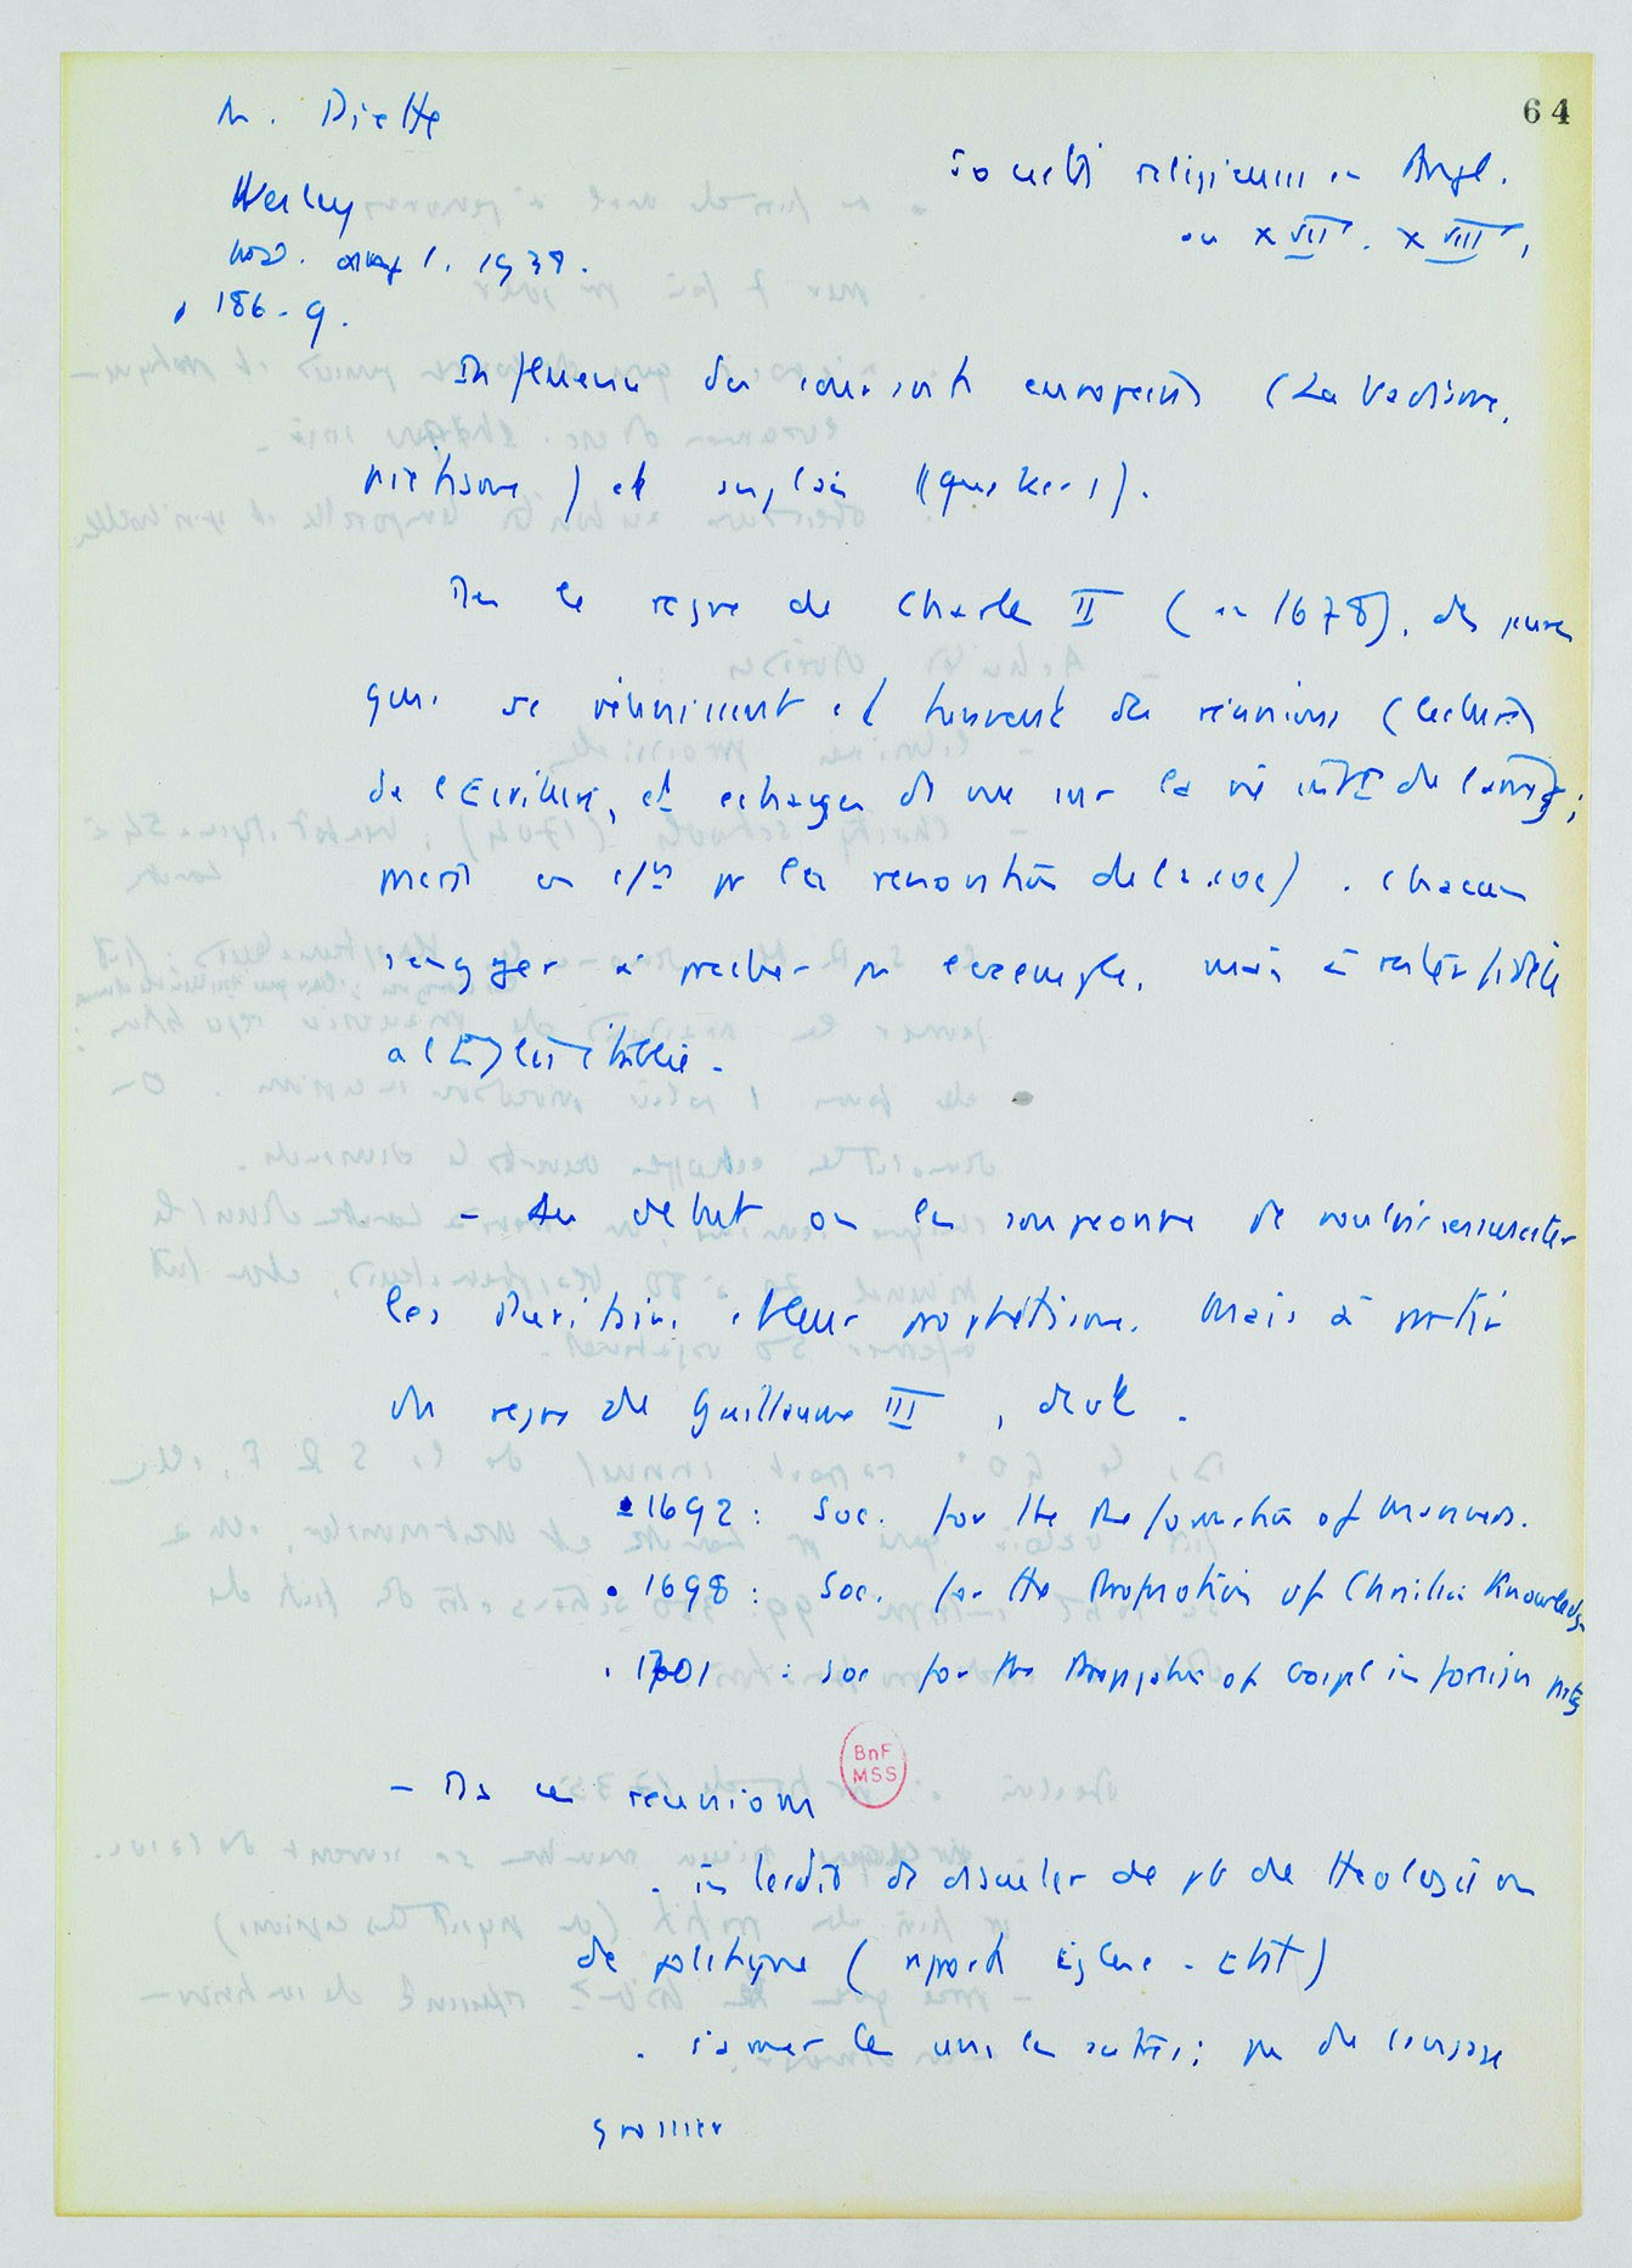 64
M. Piette
Wesley
1938.
186-9.
Sociétés religieuses en Angl.
au XVII. XVIII,
Influence des courants européens (Labadisme,
piétisme) et anglais (quakers).
Ds le règne de Charles II (en 1678), des jeunes
gens se réunissent et tiennent des réunions (lectures
de l'Écriture, et échanges de vue sur la vie de l'âme;
mise en pr la rénovation de la soc). Chacun
s'engager à prêcher pr exemple, mais à rester fidèle
à l'Eglise établie.
- Au début on les soupçonne de vouloir ressusciter
les Puritains et leur prophétisme. Mais à partir
du règne de Guillaume III, dvt.
• 1692 : Soc. for the Reformation of Manners.
• 1698 : Soc. for the Propagation of Christian Knowledge
• 1701 : soc for the Propagation of Gospel in foreign parts
BnF
MSS
- Ds ces réunions
. interdit de discuter de pb de théologie ou
de politique (rapports Eglise - Etat)
. s'aimer les uns les autres; pas de langage
grossier